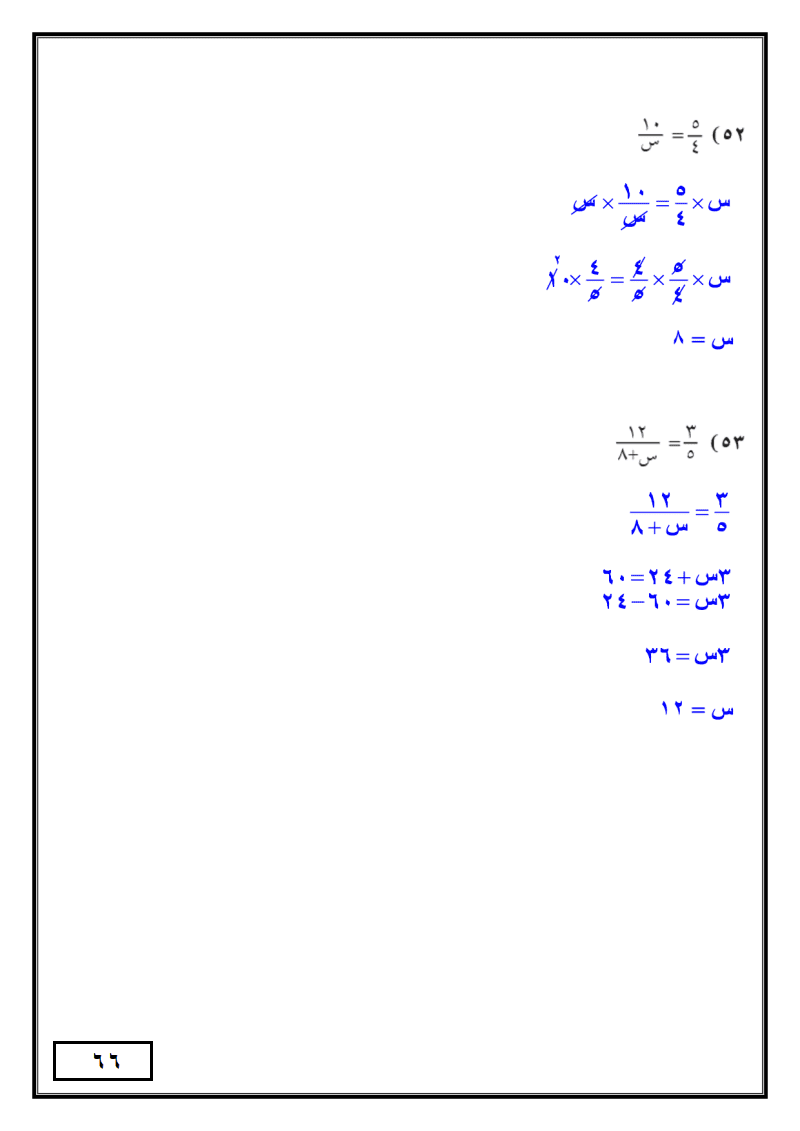 ٥٢) ٥/٤ = ١٠/س
س × ٥/٤ = ١٠/س × س
س × ٥/٤ × ٤/٥ = ٤/٥ × ١٠ ٢
س = ٨
٥٣) ٣/٥ = ١٢/س+٨
٣/٥ = ١٢/س + ٨
٣س + ٢٤ = ٦٠
٣س = ٦٠ − ٢٤
٣س = ٣٦
س = ١٢
٦٦